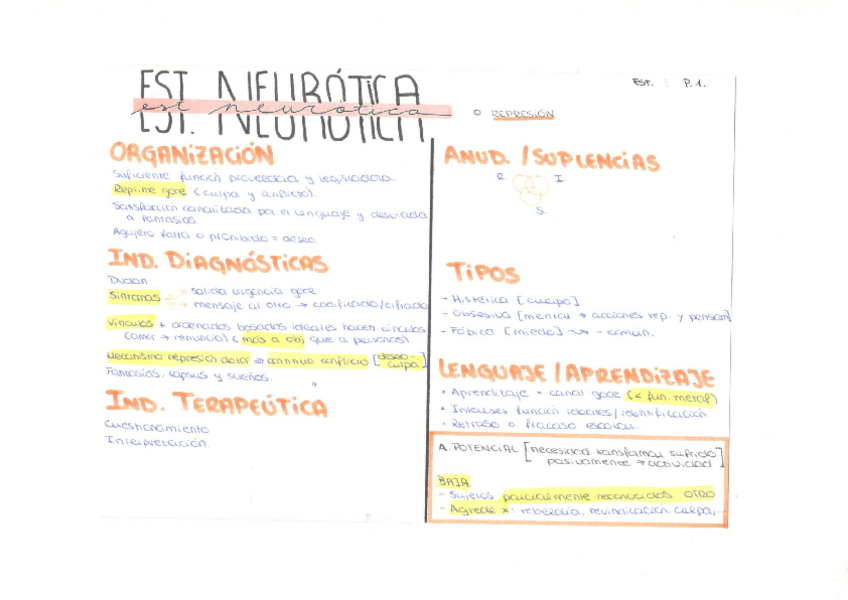 EST. NEURÓTICA
est neurótica
Est. P.1.
o REPRESIÓN
ORGANIZACIÓN
Suficiente función proveedora y legisladora.
Reprime goce (culpa y conflicto).
Satisfacción canalizada por el lenguaje y desviada
a fantasías.
Agujero falta o prohibido = deseo.
IND. DIAGNÓSTICAS
Dudan
Síntomas
→ salida urgencia goce
→ mensaje al otro → codificado/cifrado
Vínculos + ordenados basados ideales hacen vínculos
(amor → renuncia) (más a obj que a personas)
Mecanismo represión dolor ⇒ continuo conflicto [deseo-
culpa]
Fantasías, lapsus y sueños.
IND. TERAPEÚTICA
Cuestionamiento
Interpretación.
ANUD. / SUPLENCIAS
R. I.
S.
TIPOS
- Histérica [cuerpo]
- Obsesiva [mental → acciones rep. y pensam]
- Fóbica [miedo] - común.
LENGUAJE / APRENDIZAJE
• Aprendizaje + canal goce (< fun. metáf)
• Intereses función ideales/identificación
• Retraso o fracaso escolar.
A. POTENCIAL [necesidad transformar sufrido
pasivamente → actividad]
BAJA.
- Sujetos parcialmente reconocidos OTRO
- Agrede x: rebeldía, reivindicación culpa,...